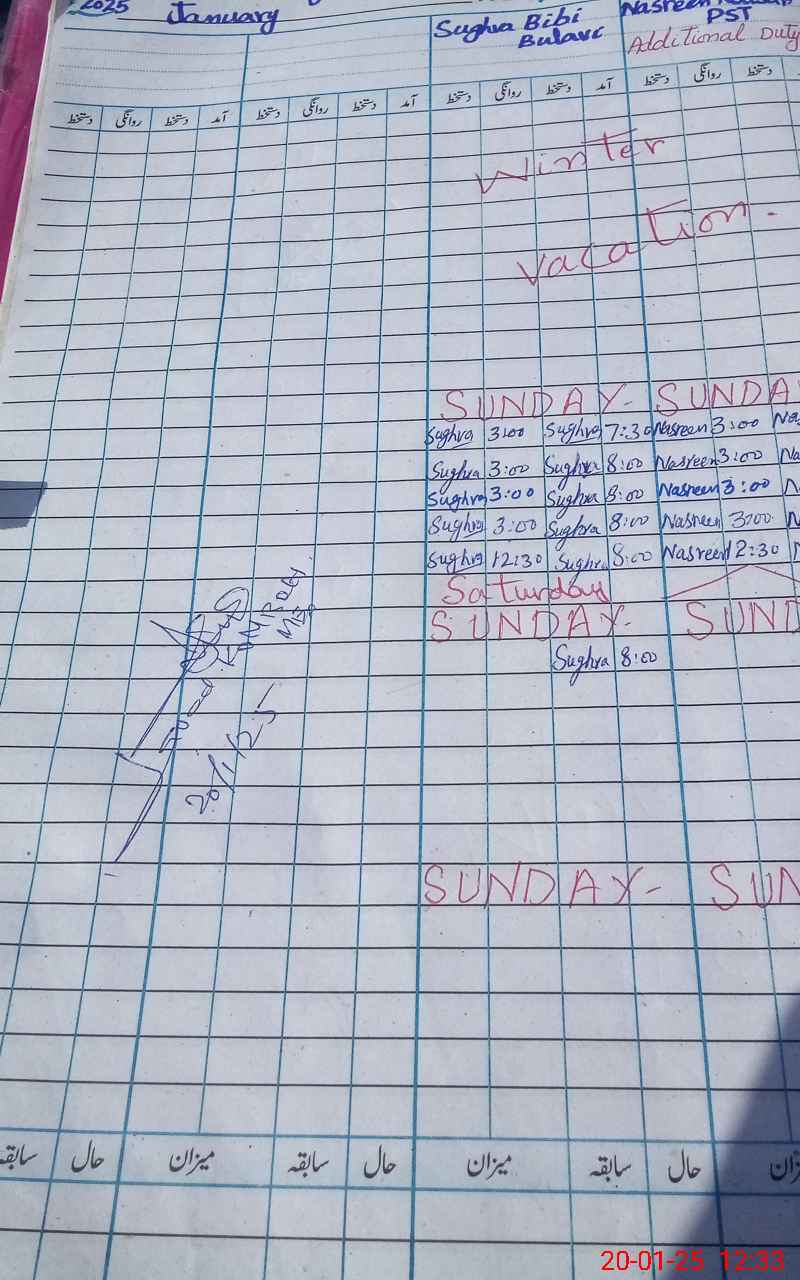 2025 January Sughra Bibi Nasreen
Bulave PST
Additional Duty
دستخط روانگی دستخط آمد دستخط روانگی دستخط آمد دستخط روانگی دستخط آمد دستخط روانگی دستخط
Winter
Vacation.
SUNDAY- SUNDAY
Sughra 3:00 Sughra 7:30 Nasreen 3:00 Na
Sughra 3:00 Sughra 8:00 Nasreen 3:00 Na
Sughra 3:00 Sughra 8:00 Nasreen 3:00 N
Sughra 3:00 Sughra 8:00 Nasreen 3:00 N
Sughra 12:30 Sughra 8:00 Nasreen 12:30 N
Saturday
SUNDAY- SUND
Sughra 8:00
20/1/25
SUNDAY- SUN
سابقہ حال میزان سابقہ حال میزان سابقہ حال میزان
20-01-25 12:33